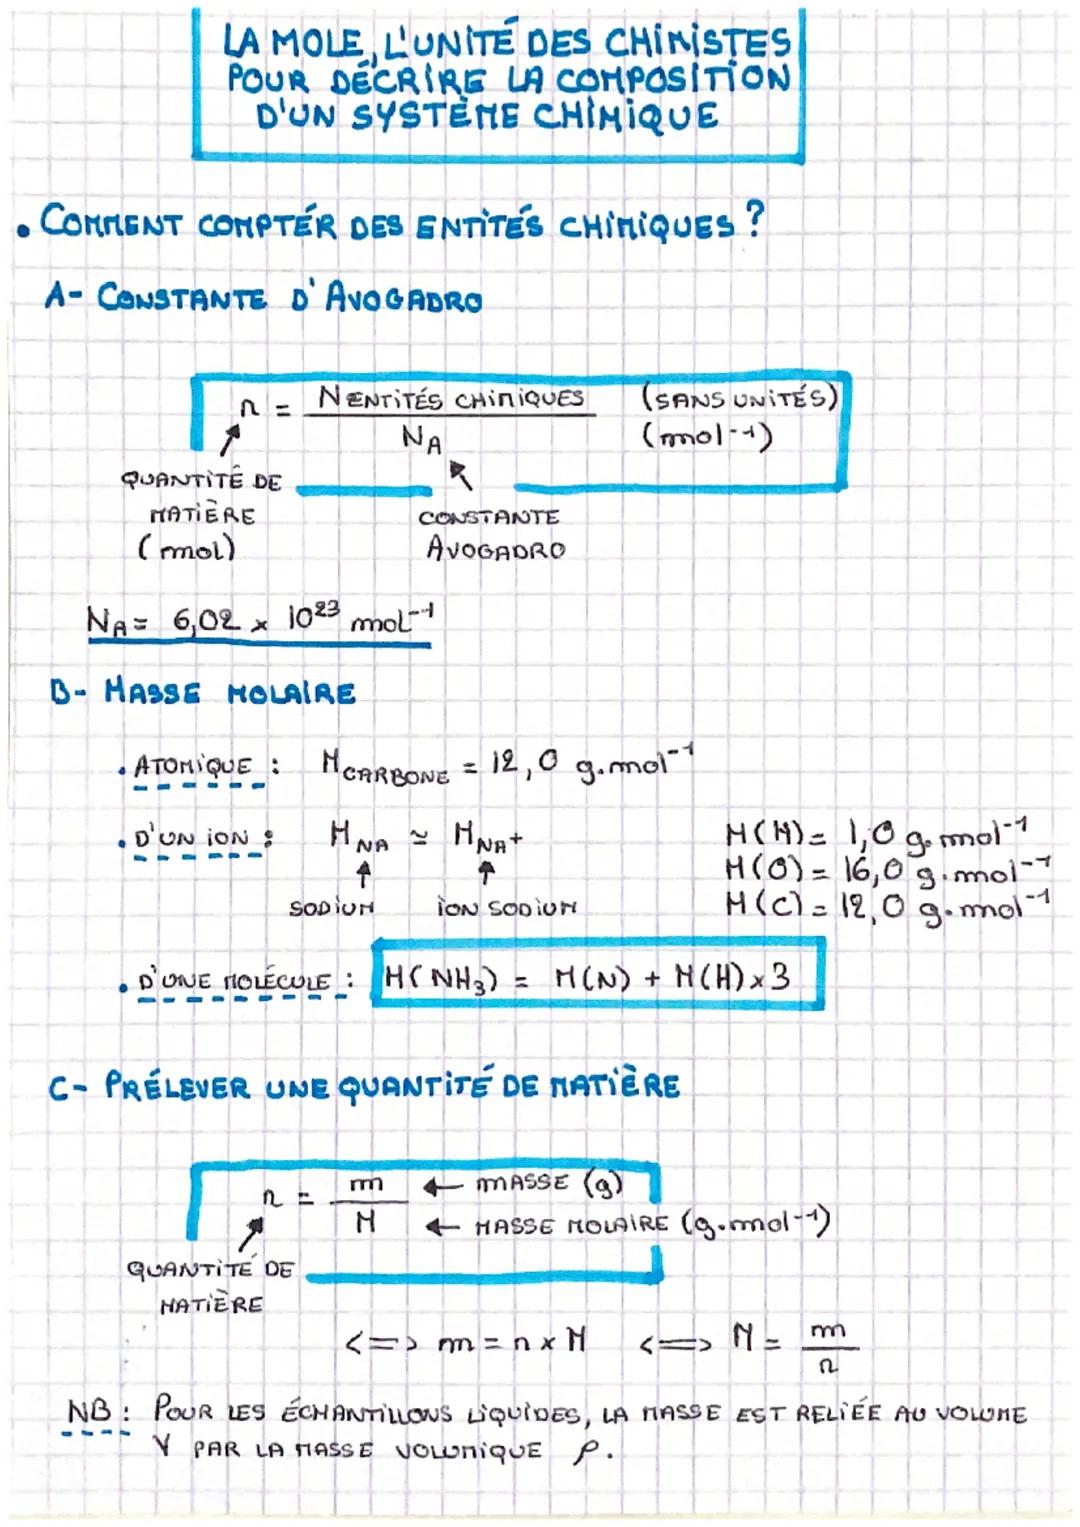 LA MOLE, L'UNITÉ DES CHIMISTES
POUR DÉCRIRE LA COMPOSITION
D'UN SYSTÈME CHIMIQUE
• COMMENT COMPTÉR DES ENTITÉS CHIMIQUES ?
A- CONSTANTE D'AVOGADRO
n = N ENTITÉS CHIMIQUES / N_A
(SANS UNITÉS)
(mol⁻¹)
QUANTITÉ DE
MATIÈRE
(mol)
CONSTANTE
AVOGADRO
N_A = 6,02 x 10²³ mol⁻¹
B- MASSE MOLAIRE
• ATOMIQUE : M CARBONE = 12,0 g.mol⁻¹
• D'UN ION : M NA ≃ M NA+
SODIUM ION SODIUM
M(H) = 1,0 g.mol⁻¹
M(O) = 16,0 g.mol⁻¹
M(C) = 12,0 g.mol⁻¹
• D'UNE MOLÉCULE : M(NH₃) = M(N) + M(H) x 3
C- PRÉLEVER UNE QUANTITÉ DE MATIÈRE
n = m / M
← MASSE (g)
← MASSE MOLAIRE (g.mol⁻¹)
QUANTITÉ DE
MATIÈRE
<=> m = n x M <=> M = m / n
NB : POUR LES ÉCHANTILLONS LIQUIDES, LA MASSE EST RELIÉE AU VOLUME
V PAR LA MASSE VOLUMIQUE ρ.